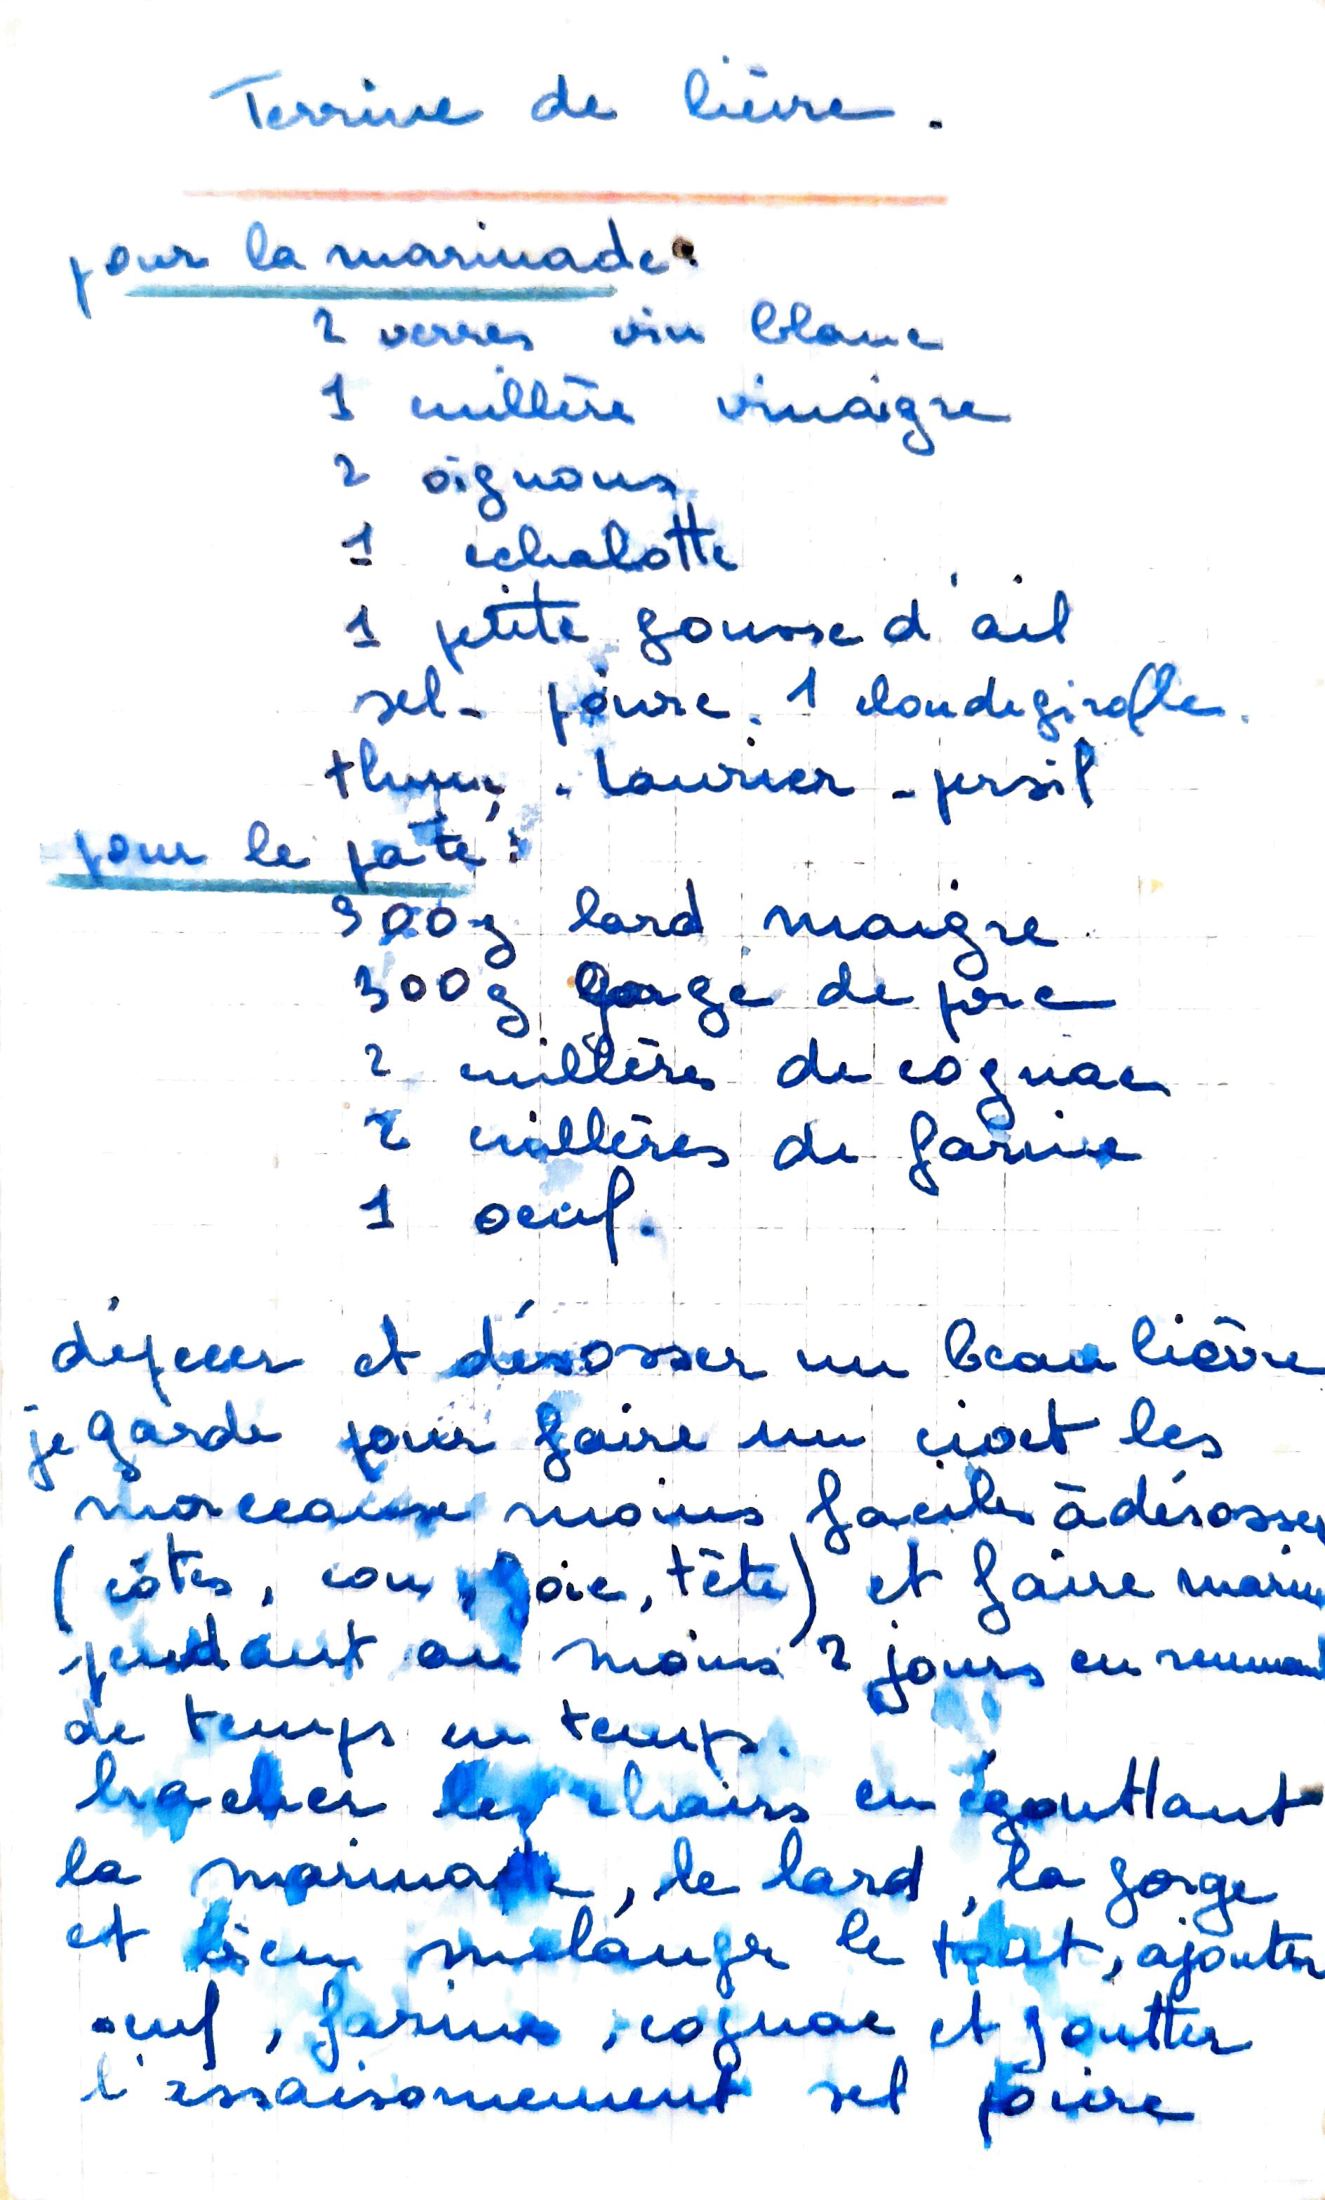 Terrine de lièvre.
pour la marinade:
2 verres vin blanc
1 cuillère vinaigre
2 oignons
1 echalotte
1 petite gousse d'ail
sel - poivre. 1 clou de girofle.
thym - laurier - persil
pour le pâté:
300g lard maigre
300g gorge de porc
2 cuillères de cognac
2 cuillères de farine
1 oeuf.
dépecer et désosser un beau lièvre
je garde pour faire un civet les
morceaux moins faciles à désosser
(côtes, cou, foie, tête) et faire marin
pendant au moins 2 jours en remuant
de temps en temps.
hacher les chairs en égouttant
la marinade, le lard, la gorge
et bien mélanger le tout, ajouter
oeuf, farine, cognac et goutter
l'assaisonnement sel poivre